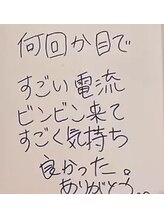 何回か目で
すごい電流
ビンビン来て
すごく気持ち
良かった。
ありがとう